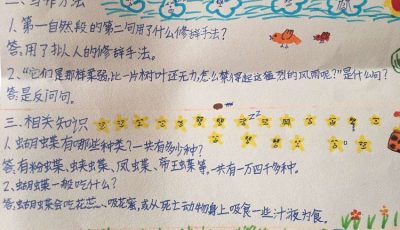 二、写作方法
1.第一自然段的第二句用了什么修辞手法?
答:用了拟人的修辞手法。
2."它们是那样柔弱,比一片树叶还无力,怎么禁得起这猛烈的风雨呢?"是什么句?
答:是反问句。
zz
三.相关知识
1.蝴蝶有哪些种类?一共有多少种?
答:有粉蝶、蛱蝶、凤蝶、帝王蝶等,一共有一万四千多种。
2.蝴蝶一般吃什么?
答:蝴蝶会吃花蕊、吸花蜜,或从死亡动物身上吸食一些汁液为食。